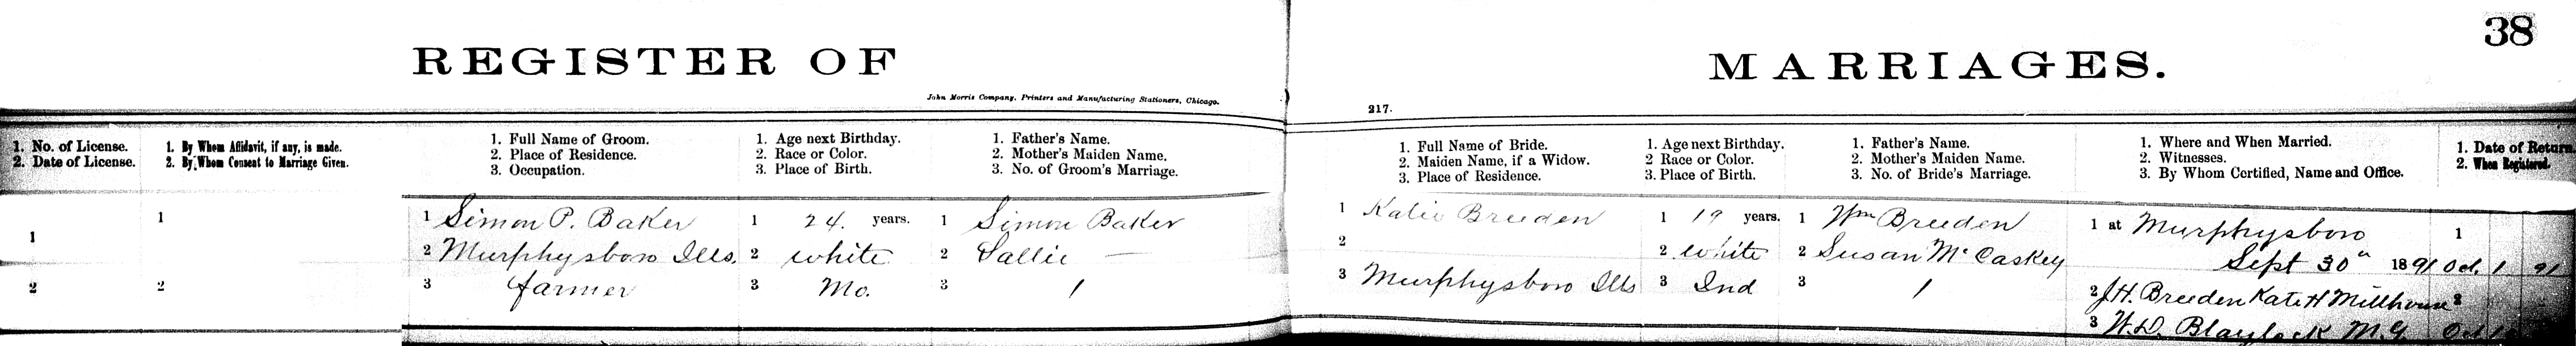 38
REGISTER OF MARRIAGES.
John Morris Company, Printers and Manufacturing Stationers, Chicago.
217.
1. No. of License.
2. Date of License.
1. By Whom Affidavit, if any, is made.
2. By Whom Consent to Marriage Given.
1. Full Name of Groom.
2. Place of Residence.
3. Occupation.
1. Age next Birthday.
2. Race or Color.
3. Place of Birth.
1. Father's Name.
2. Mother's Maiden Name.
3. No. of Groom's Marriage.
1. Full Name of Bride.
2. Maiden Name, if a Widow.
3. Place of Residence.
1. Age next Birthday.
2 Race or Color.
3. Place of Birth.
1. Father's Name.
2. Mother's Maiden Name.
3. No. of Bride's Marriage.
1. Where and When Married.
2. Witnesses.
3. By Whom Certified, Name and Office.
1. Date of Return.
2. When Registered.
1
2
1
2
1 Simon P. Baker
2 Murphysboro Ills.
3 farmer
1 24. years.
2 white
3 Mo.
1 Simon Baker
2 Sallie —
3 1
1 Katie Breeden
2
3 Murphysboro Ills
1 19 years.
2 white
3 Ind
1 Wm Breeden
2 Susan McCaskey
3 1
1 at Murphysboro
Sept 30" 1891
2 J.H. Breeden Kate H Millhouse
3 W.D. Blaylock M.G.
1
Oct. 1 91
2
Oct 1